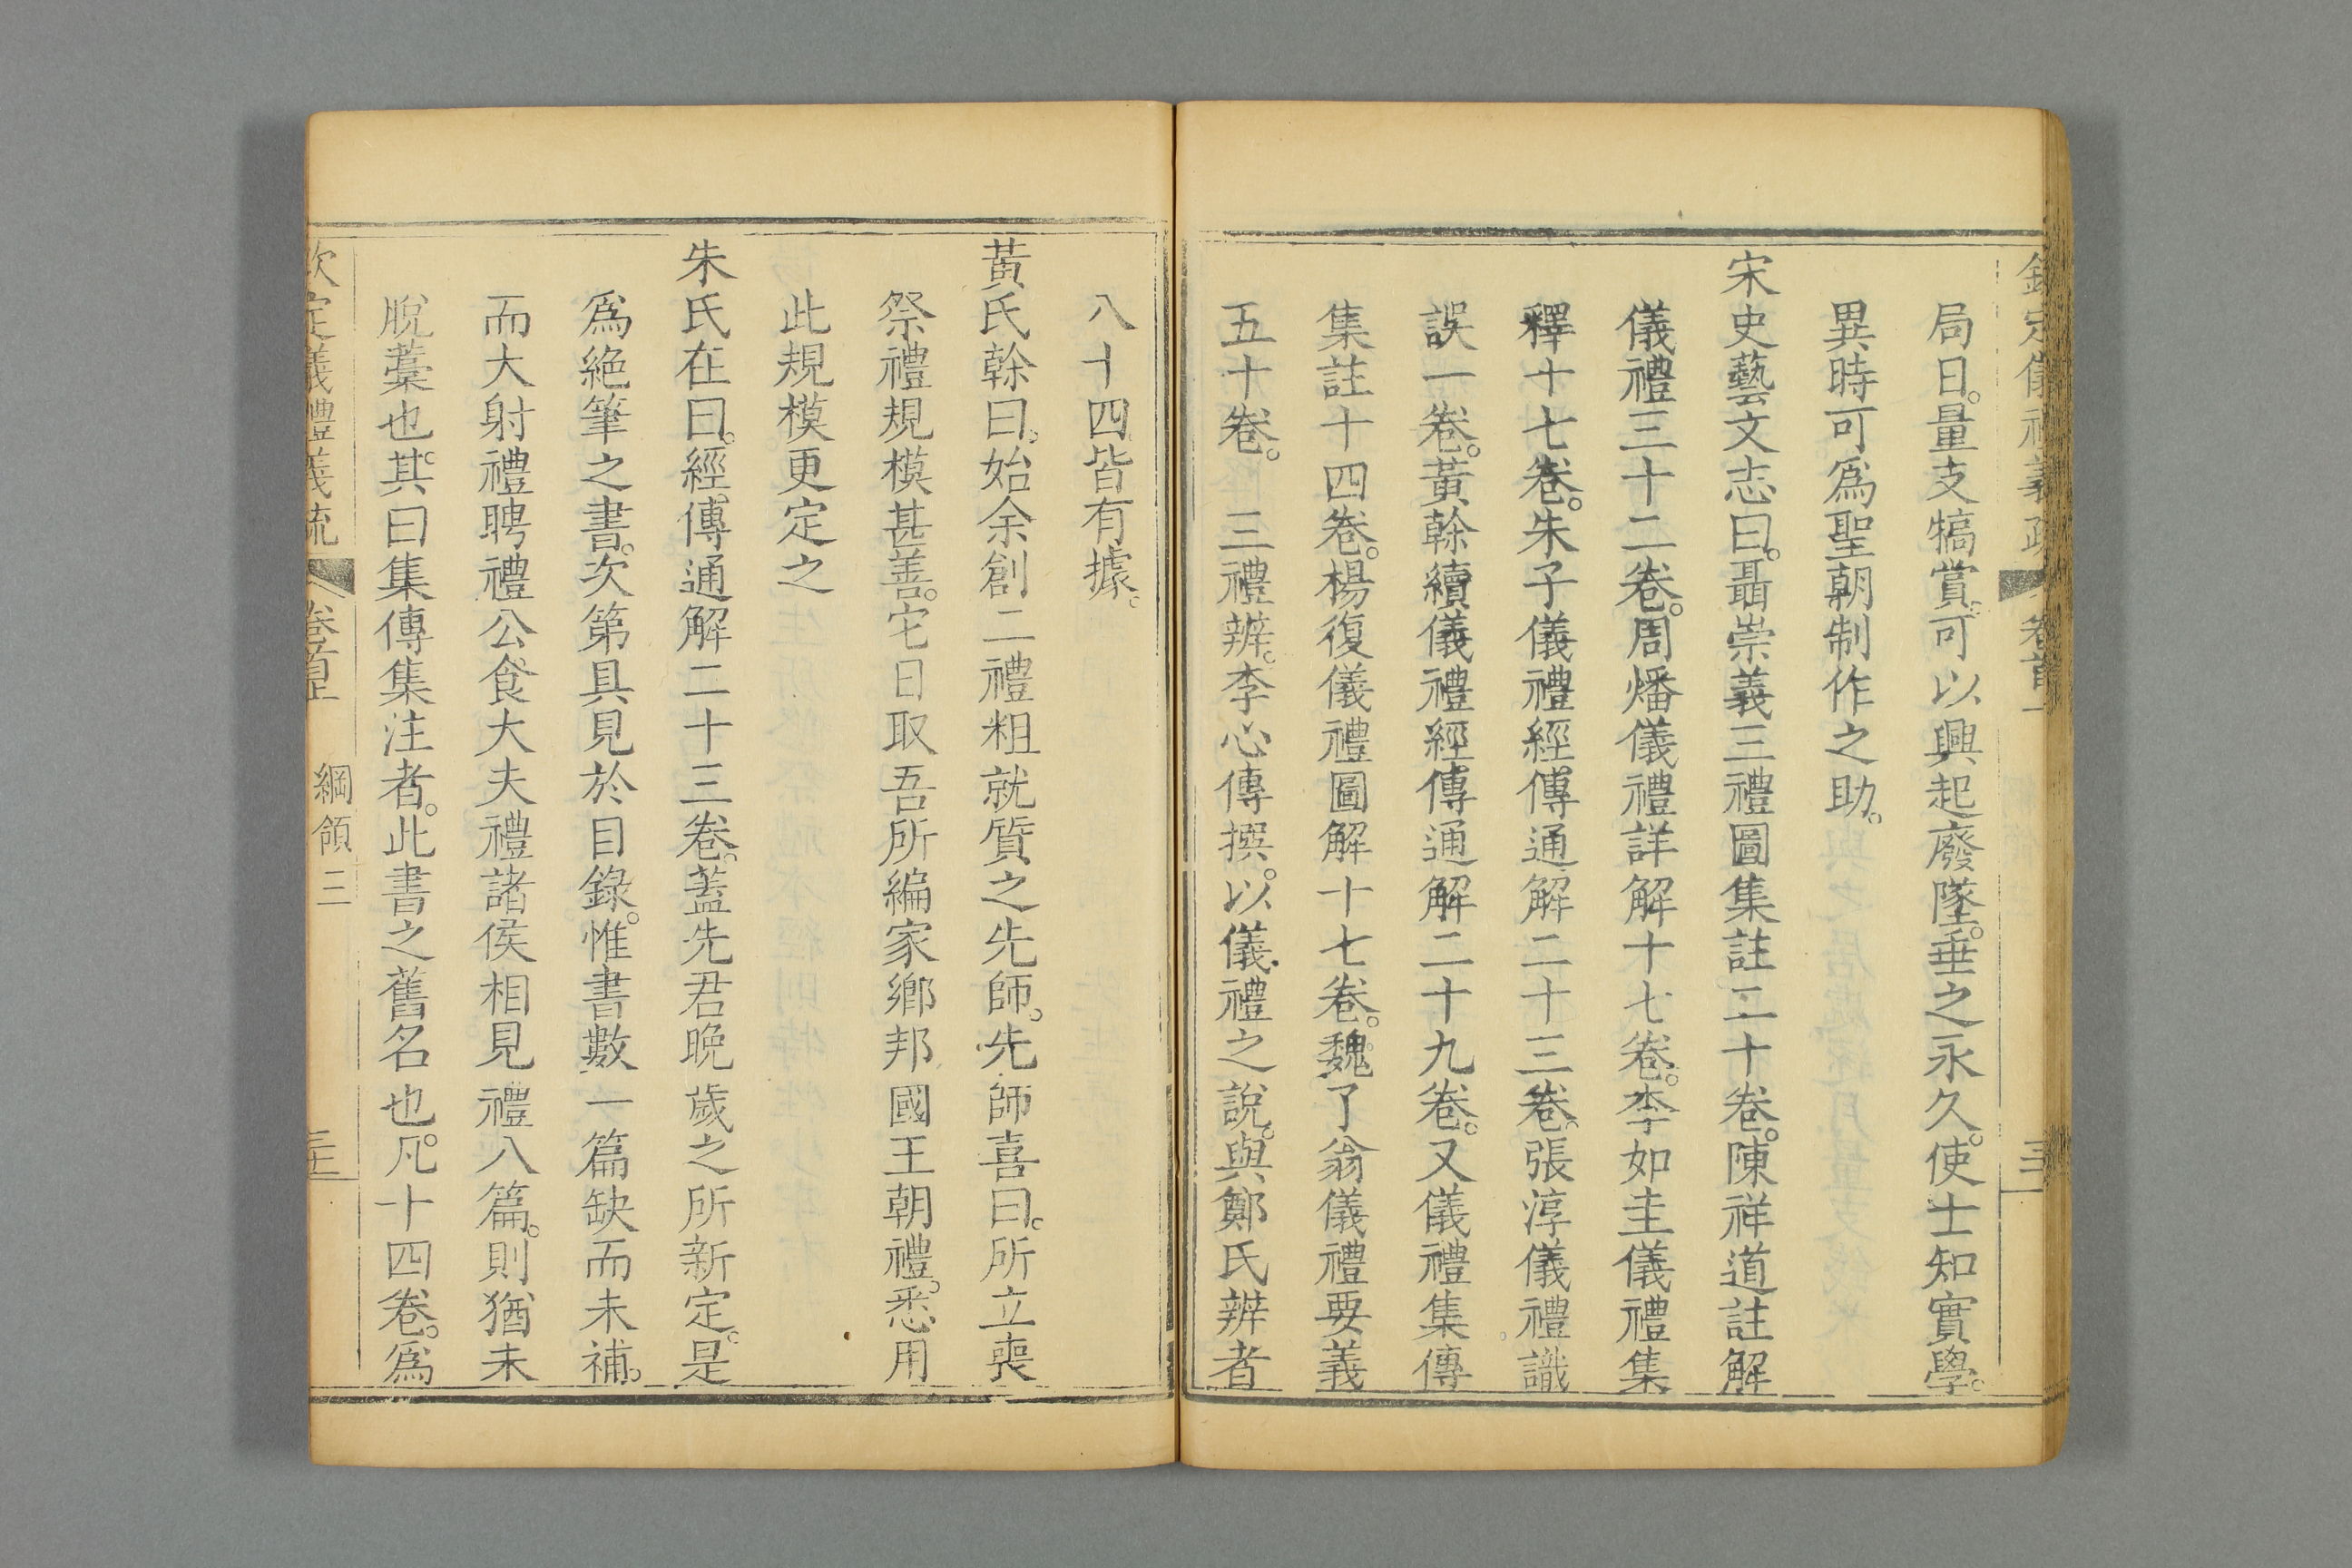 欽定儀禮義疏 卷首
局日。量支犒賞。可以興起廢墜。垂之永久。使士知實學。
異時可爲聖朝制作之助。
宋史藝文志曰。聶崇義三禮圖集註二十卷。陳祥道註解
儀禮三十二卷。周燔儀禮詳解十七卷。李如圭儀禮集
釋十七卷。朱子儀禮經傳通解二十三卷。張淳儀禮識
誤一卷。黃榦續儀禮經傳通解二十九卷。又儀禮集傳
集註十四卷。楊復儀禮圖解十七卷。魏了翁儀禮要義
五十卷。 三禮辨。李心傳撰。以儀禮之說。與鄭氏辨者
八十四皆有據。
黃氏榦曰。始余創二禮粗就質之先師。先師喜曰。所立喪
祭禮規模甚善。它日取吾所編家鄉邦國王朝禮。悉用
此規模更定之
朱氏在曰。經傳通解二十三卷。蓋先君晚歲之所新定。是
爲絶筆之書。次第具見於目錄。惟書數一篇缺而未補。
而大射禮聘禮公食大夫禮諸侯相見禮八篇。則猶未
脫藁也。其曰集傳集注者。此書之舊名也。凡十四卷。爲
欽定儀禮義疏 卷首上 綱領三